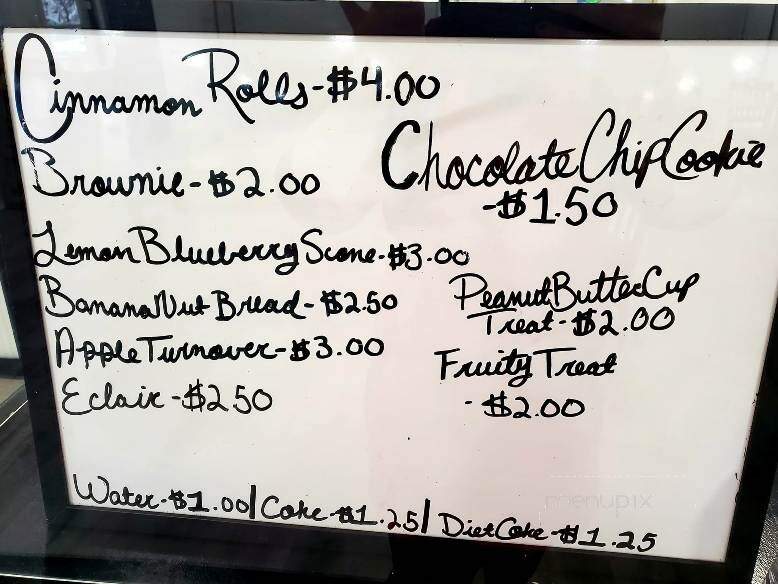 Cinnamon Rolls-$4.00
Chocolate Chip Cookie
-$1.50
Brownie-$2.00
Lemon Blueberry Scone-$3.00
Banana Nut Bread-$2.50
Apple Turnover-$3.00
Eclair-$2.50
Peanut Butter Cup
Treat-$2.00
Fruity Treat
-$2.00
Water-$1.00/Coke-$1.25/Diet Coke-$1.25
menupix